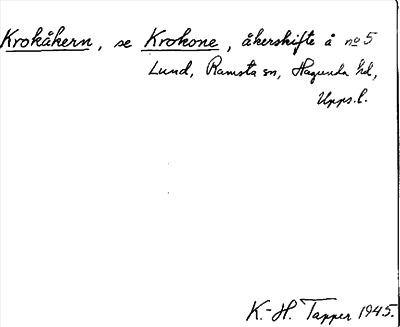 Krokåkern, se Krokone, åkerskifte å nº 5
Lund, Ramsta sn, Hagunda hd,
Upps.l.
K.-H. Tapper 1945.